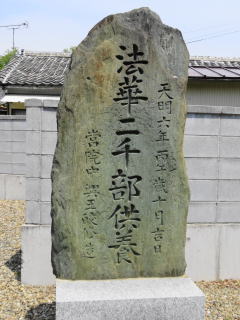 天明六年丙午歳十月吉日
法華二千部供養
当院中興玉